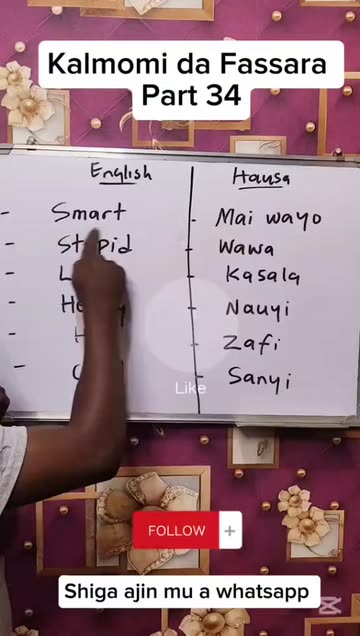 Kalmomi da Fassara
Part 34
English Hausa
- Smart - Mai wayo
- - Wawa
- - Kasala
- - Nauyi
- - Zafi
- - Sanyi
Like
FOLLOW +
Shiga ajin mu a whatsapp